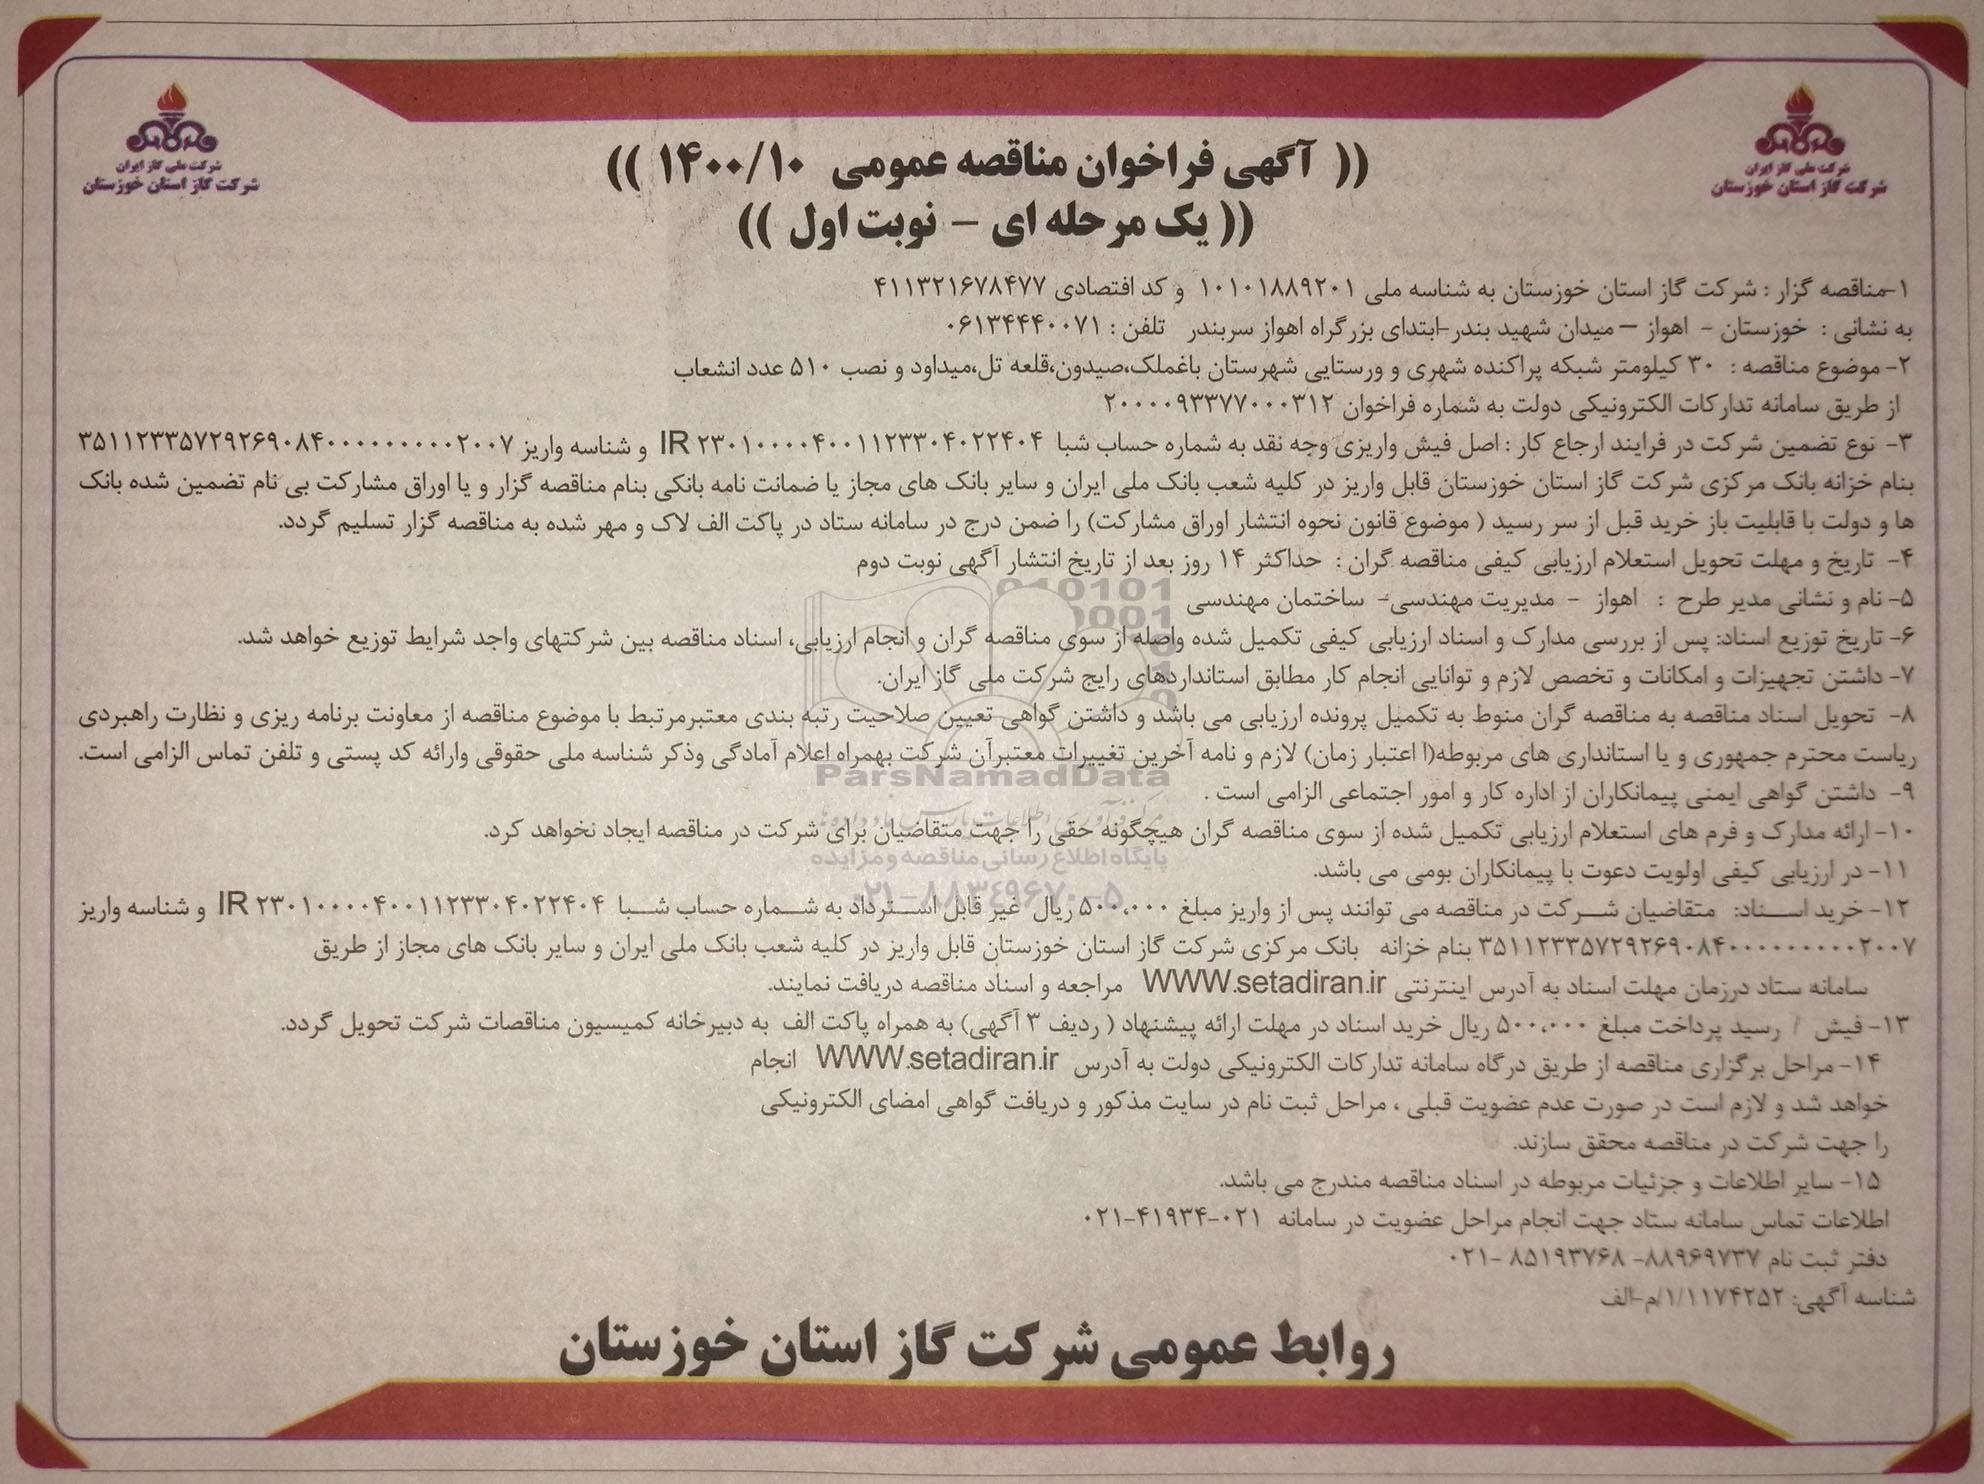 شرکت ملی گاز ایران
شرکت گاز استان خوزستان
شرکت ملی گاز ایران
شرکت گاز استان خوزستان
(( آگهی فراخوان مناقصه عمومی ۱۴۰۰/۱۰ ))
(( یک مرحله ای - نوبت اول ))
۱-مناقصه گزار : شرکت گاز استان خوزستان به شناسه ملی ۱۰۱۰۱۸۸۹۲۰۱ و کد اقتصادی ۴۱۱۳۲۱۶۷۸۴۷۷
به نشانی : خوزستان - اهواز – میدان شهید بندر-ابتدای بزرگراه اهواز سربندر تلفن : ۰۶۱۳۴۴۴۰۰۷۱
۲- موضوع مناقصه : ۳۰ کیلومتر شبکه پراکنده شهری و ورستایی شهرستان باغملک،صیدون،قلعه تل،میداود و نصب ۵۱۰ عدد انشعاب
از طریق سامانه تدارکات الکترونیکی دولت به شماره فراخوان ۲۰۰۰۰۹۳۳۷۷۰۰۰۳۱۲
۳- نوع تضمین شرکت در فرایند ارجاع کار : اصل فیش واریزی وجه نقد به شماره حساب شبا IR ۲۳۰۱۰۰۰۰۴۰۰۱۱۲۳۳۰۴۰۲۲۴۰۴ و شناسه واریز ۳۵۱۱۲۳۳۵۷۲۹۲۶۹۰۸۴۰۰۰۰۰۰۰۰۰۰۲۰۰۷
بنام خزانه بانک مرکزی شرکت گاز استان خوزستان قابل واریز در کلیه شعب بانک ملی ایران و سایر بانک های مجاز یا ضمانت نامه بانکی بنام مناقصه گزار و یا اوراق مشارکت بی نام تضمین شده بانک
ها و دولت با قابلیت باز خرید قبل از سر رسید ( موضوع قانون نحوه انتشار اوراق مشارکت) را ضمن درج در سامانه ستاد در پاکت الف لاک و مهر شده به مناقصه گزار تسلیم گردد.
۴- تاریخ و مهلت تحویل استعلام ارزیابی کیفی مناقصه گران : حداکثر ۱۴ روز بعد از تاریخ انتشار آگهی نوبت دوم
۵- نام و نشانی مدیر طرح : اهواز - مدیریت مهندسی- ساختمان مهندسی
۶- تاریخ توزیع اسناد: پس از بررسی مدارک و اسناد ارزیابی کیفی تکمیل شده واصله از سوی مناقصه گران و انجام ارزیابی، اسناد مناقصه بین شرکتهای واجد شرایط توزیع خواهد شد.
۷- داشتن تجهیزات و امکانات و تخصص لازم و توانایی انجام کار مطابق استانداردهای رایج شرکت ملی گاز ایران.
۸- تحویل اسناد مناقصه به مناقصه گران منوط به تکمیل پرونده ارزیابی می باشد و داشتن گواهی تعیین صلاحیت رتبه بندی معتبرمرتبط با موضوع مناقصه از معاونت برنامه ریزی و نظارت راهبردی
ریاست محترم جمهوری و یا استانداری های مربوطه(ا اعتبار زمان) لازم و نامه آخرین تغییرات معتبرآن شرکت بهمراه اعلام آمادگی وذکر شناسه ملی حقوقی وارائه کد پستی و تلفن تماس الزامی است.
۹- داشتن گواهی ایمنی پیمانکاران از اداره کار و امور اجتماعی الزامی است .
۱۰- ارائه مدارک و فرم های استعلام ارزیابی تکمیل شده از سوی مناقصه گران هیچگونه حقی را جهت متقاضیان برای شرکت در مناقصه ایجاد نخواهد کرد.
۱۱- در ارزیابی کیفی اولویت دعوت با پیمانکاران بومی می باشد.
۱۲- خرید اسناد: متقاضیان شرکت در مناقصه می توانند پس از واریز مبلغ ۵۰۰،۰۰۰ ریال غیر قابل استرداد به شماره حساب شبا IR ۲۳۰۱۰۰۰۰۴۰۰۱۱۲۳۳۰۴۰۲۲۴۰۴ و شناسه واریز
۳۵۱۱۲۳۳۵۷۲۹۲۶۹۰۸۴۰۰۰۰۰۰۰۰۰۰۲۰۰۷ بنام خزانه بانک مرکزی شرکت گاز استان خوزستان قابل واریز در کلیه شعب بانک ملی ایران و سایر بانک های مجاز از طریق
سامانه ستاد درزمان مهلت اسناد به آدرس اینترنتی WWW.setadiran.ir مراجعه و اسناد مناقصه دریافت نمایند.
۱۳- فیش / رسید پرداخت مبلغ ۵۰۰،۰۰۰ ریال خرید اسناد در مهلت ارائه پیشنهاد ( ردیف ۳ آگهی) به همراه پاکت الف به دبیرخانه کمیسیون مناقصات شرکت تحویل گردد.
۱۴- مراحل برگزاری مناقصه از طریق درگاه سامانه تدارکات الکترونیکی دولت به آدرس WWW.setadiran.ir انجام
خواهد شد و لازم است در صورت عدم عضویت قبلی ، مراحل ثبت نام در سایت مذکور و دریافت گواهی امضای الکترونیکی
را جهت شرکت در مناقصه محقق سازند.
۱۵- سایر اطلاعات و جزئیات مربوطه در اسناد مناقصه مندرج می باشد.
اطلاعات تماس سامانه ستاد جهت انجام مراحل عضویت در سامانه ۰۲۱-۴۱۹۳۴-۰۲۱
دفتر ثبت نام ۸۸۹۶۹۷۳۷- ۸۵۱۹۳۷۶۸ -۰۲۱
شناسه آگهی: ۱/۱۱۷۴۲۵۲/م-الف
روابط عمومی شرکت گاز استان خوزستان
ParsNamadData
پایگاه اطلاع رسانی مناقصه و مزایده
۰۲۱-۸۸۳۴۹۶۷۰-۵